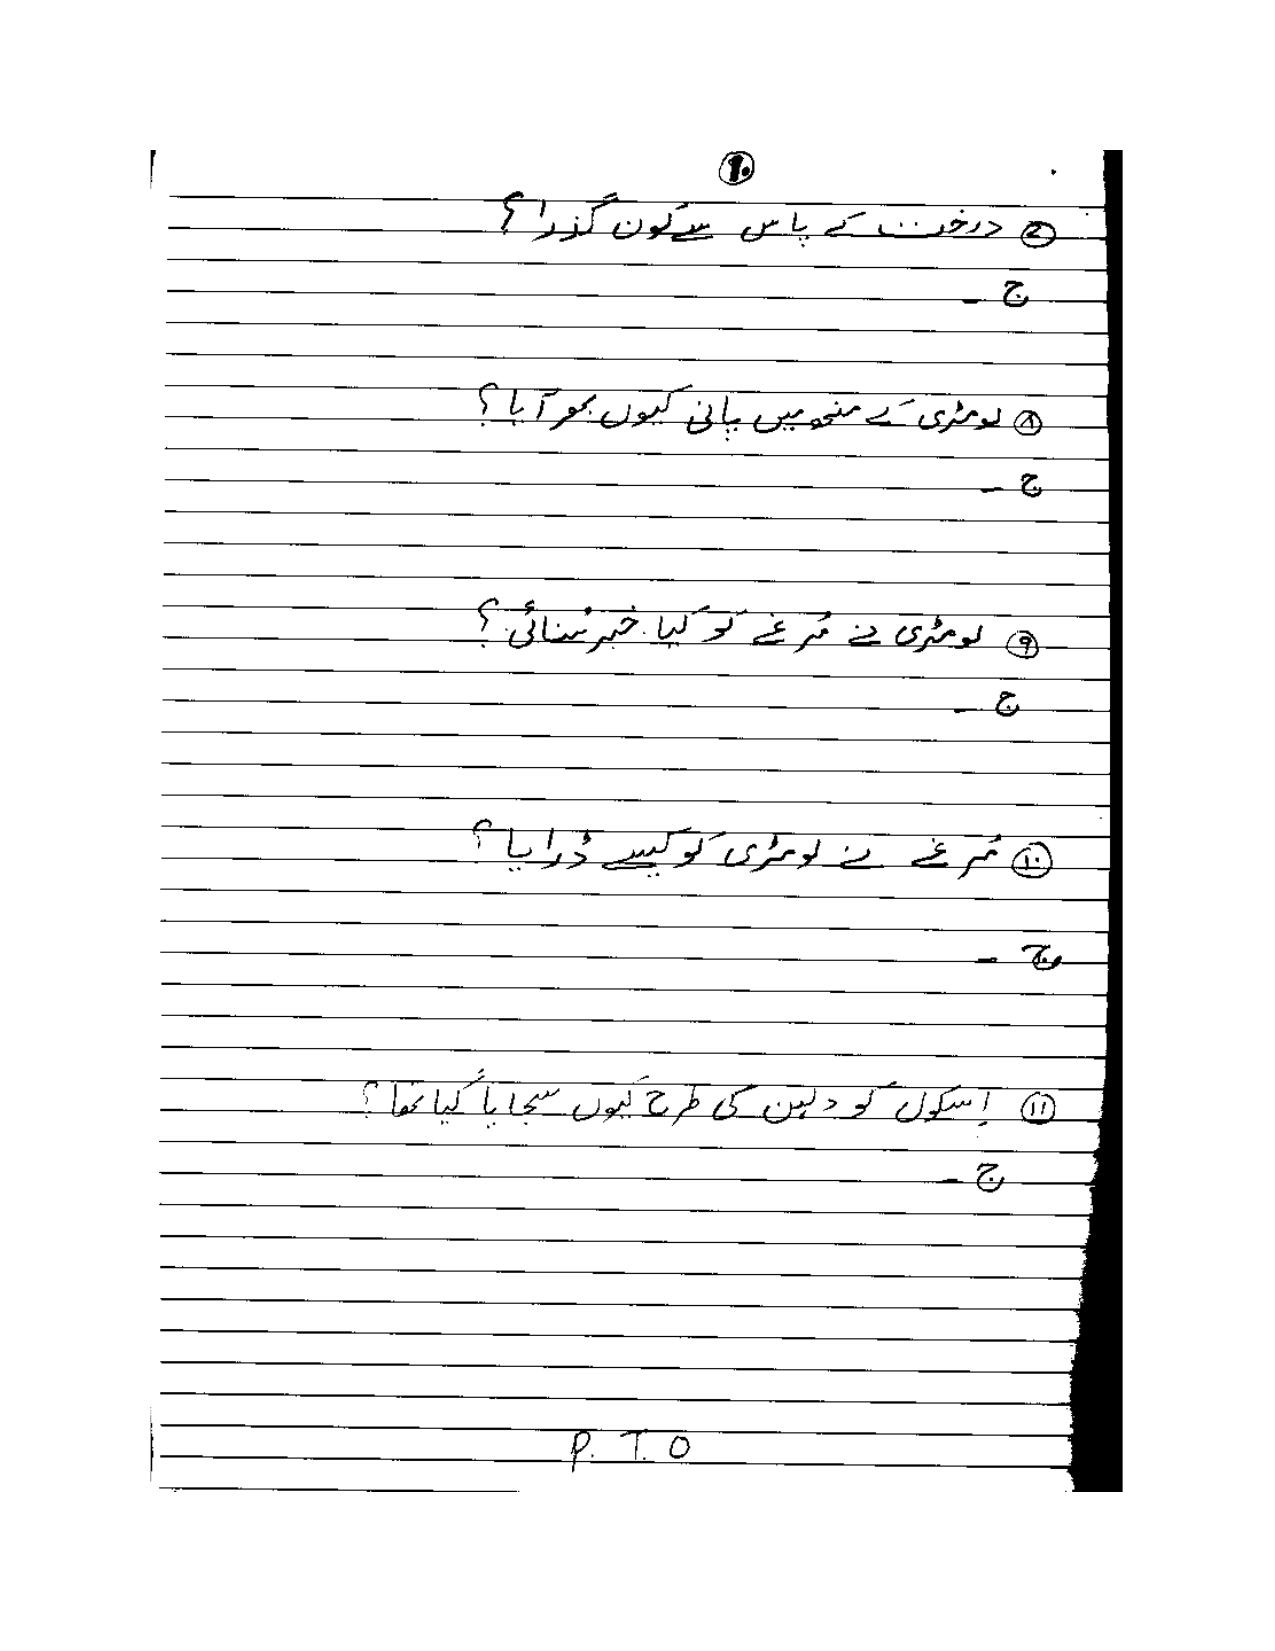 ۱۰
۷ درخت کے پاس سے کون گذرا؟
ج -
۸ لومڑی کے منھ میں پانی کیوں بھر آیا؟
ج -
۹ لومڑی نے مُرغے کو کیا خبر سُنائی؟
ج -
۱۰ مُرغے نے لومڑی کو کیسے ڈرایا؟
ج -
۱۱ اِسکول کو دلہن کی طرح کیوں سجایا گیا تھا؟
ج -
P.T.O